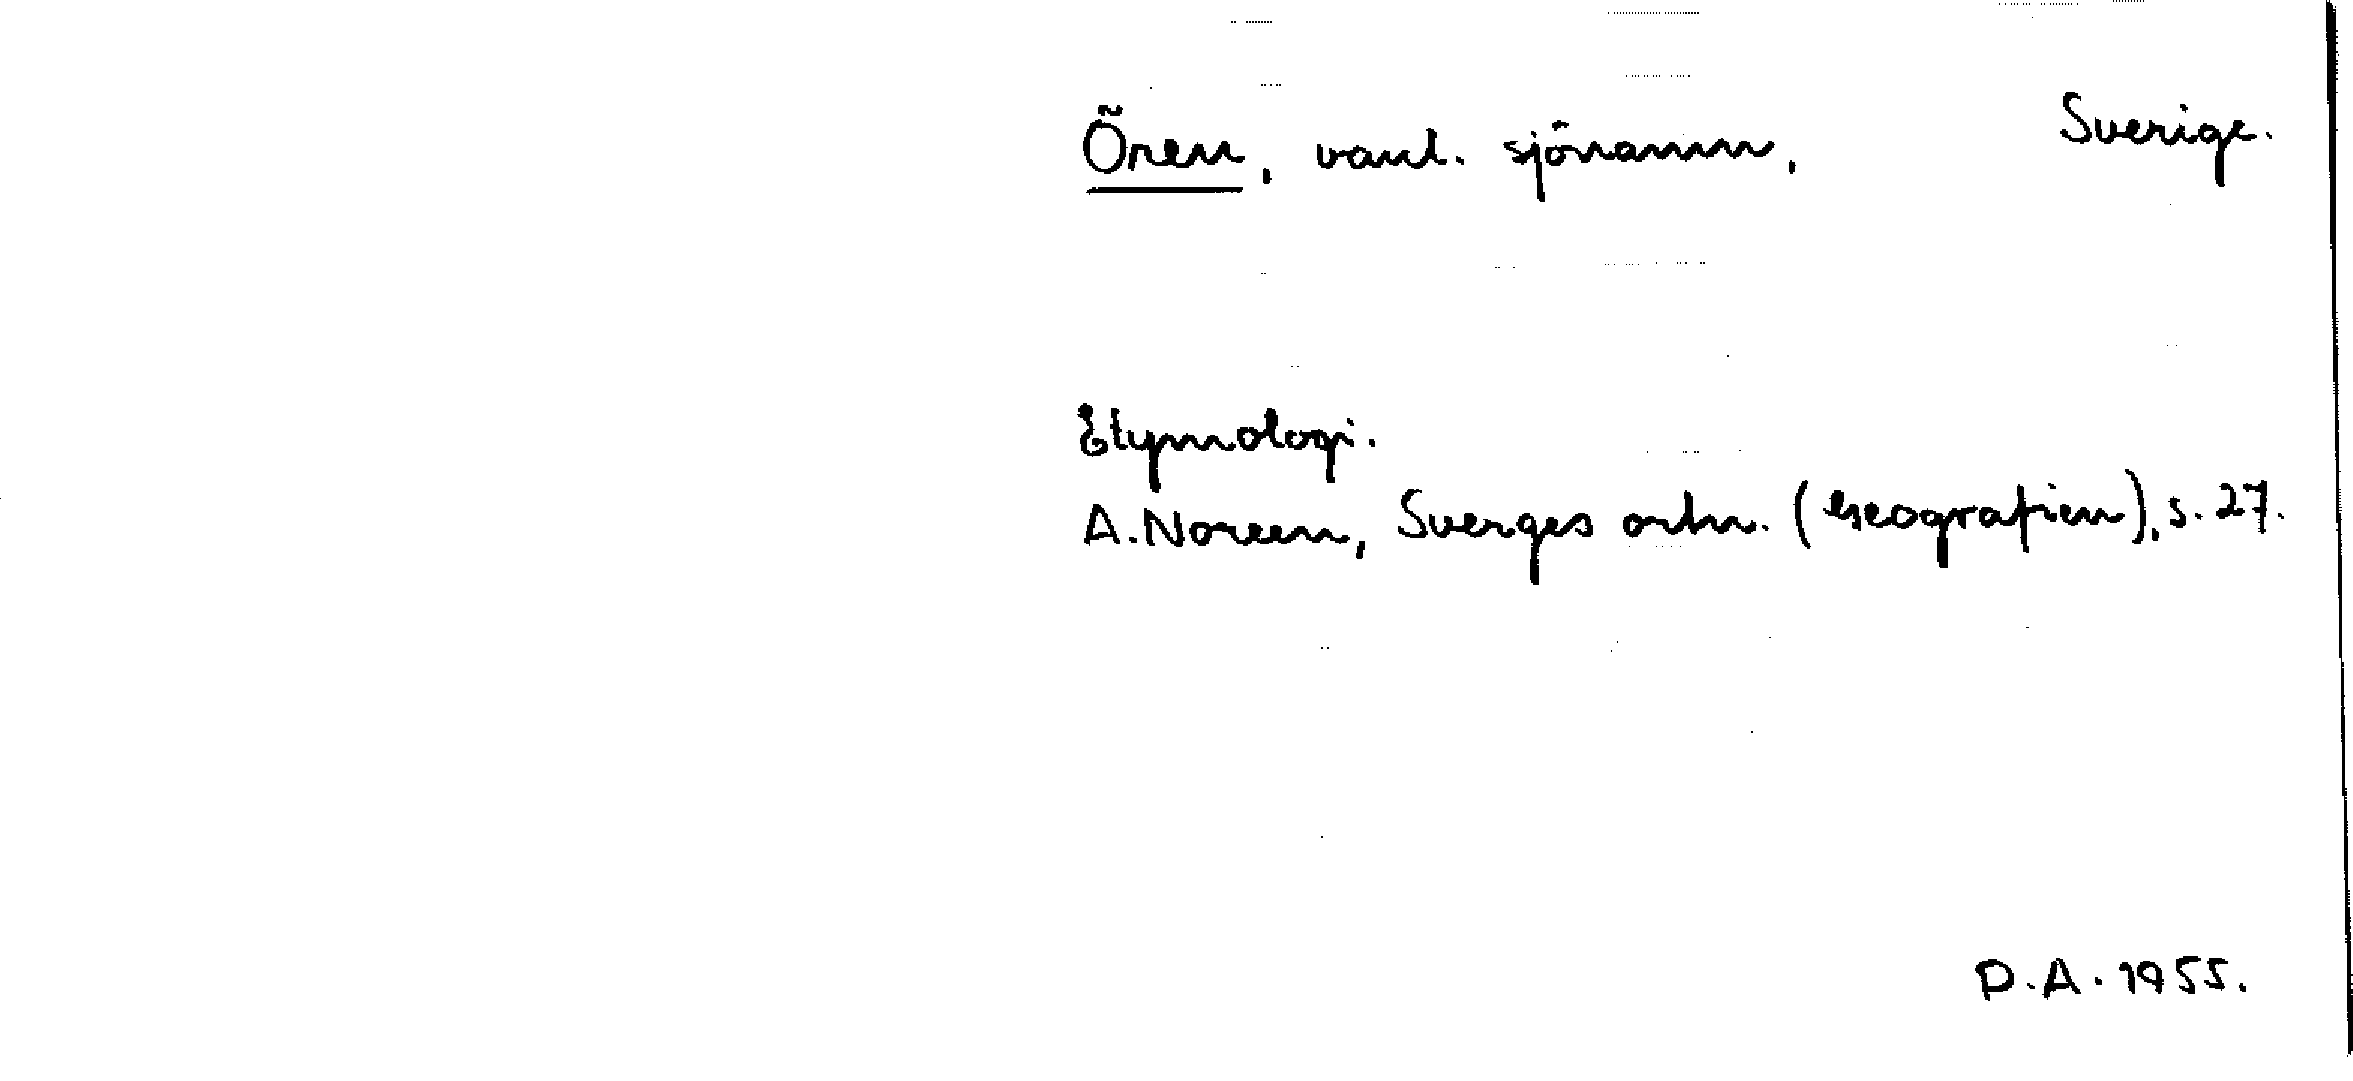 Ören, vanl. sjönamn, Sverige.
Etymologi.
A. Noreen, Sverges ortn. (Geografien), s. 27.
D.A. 1955.